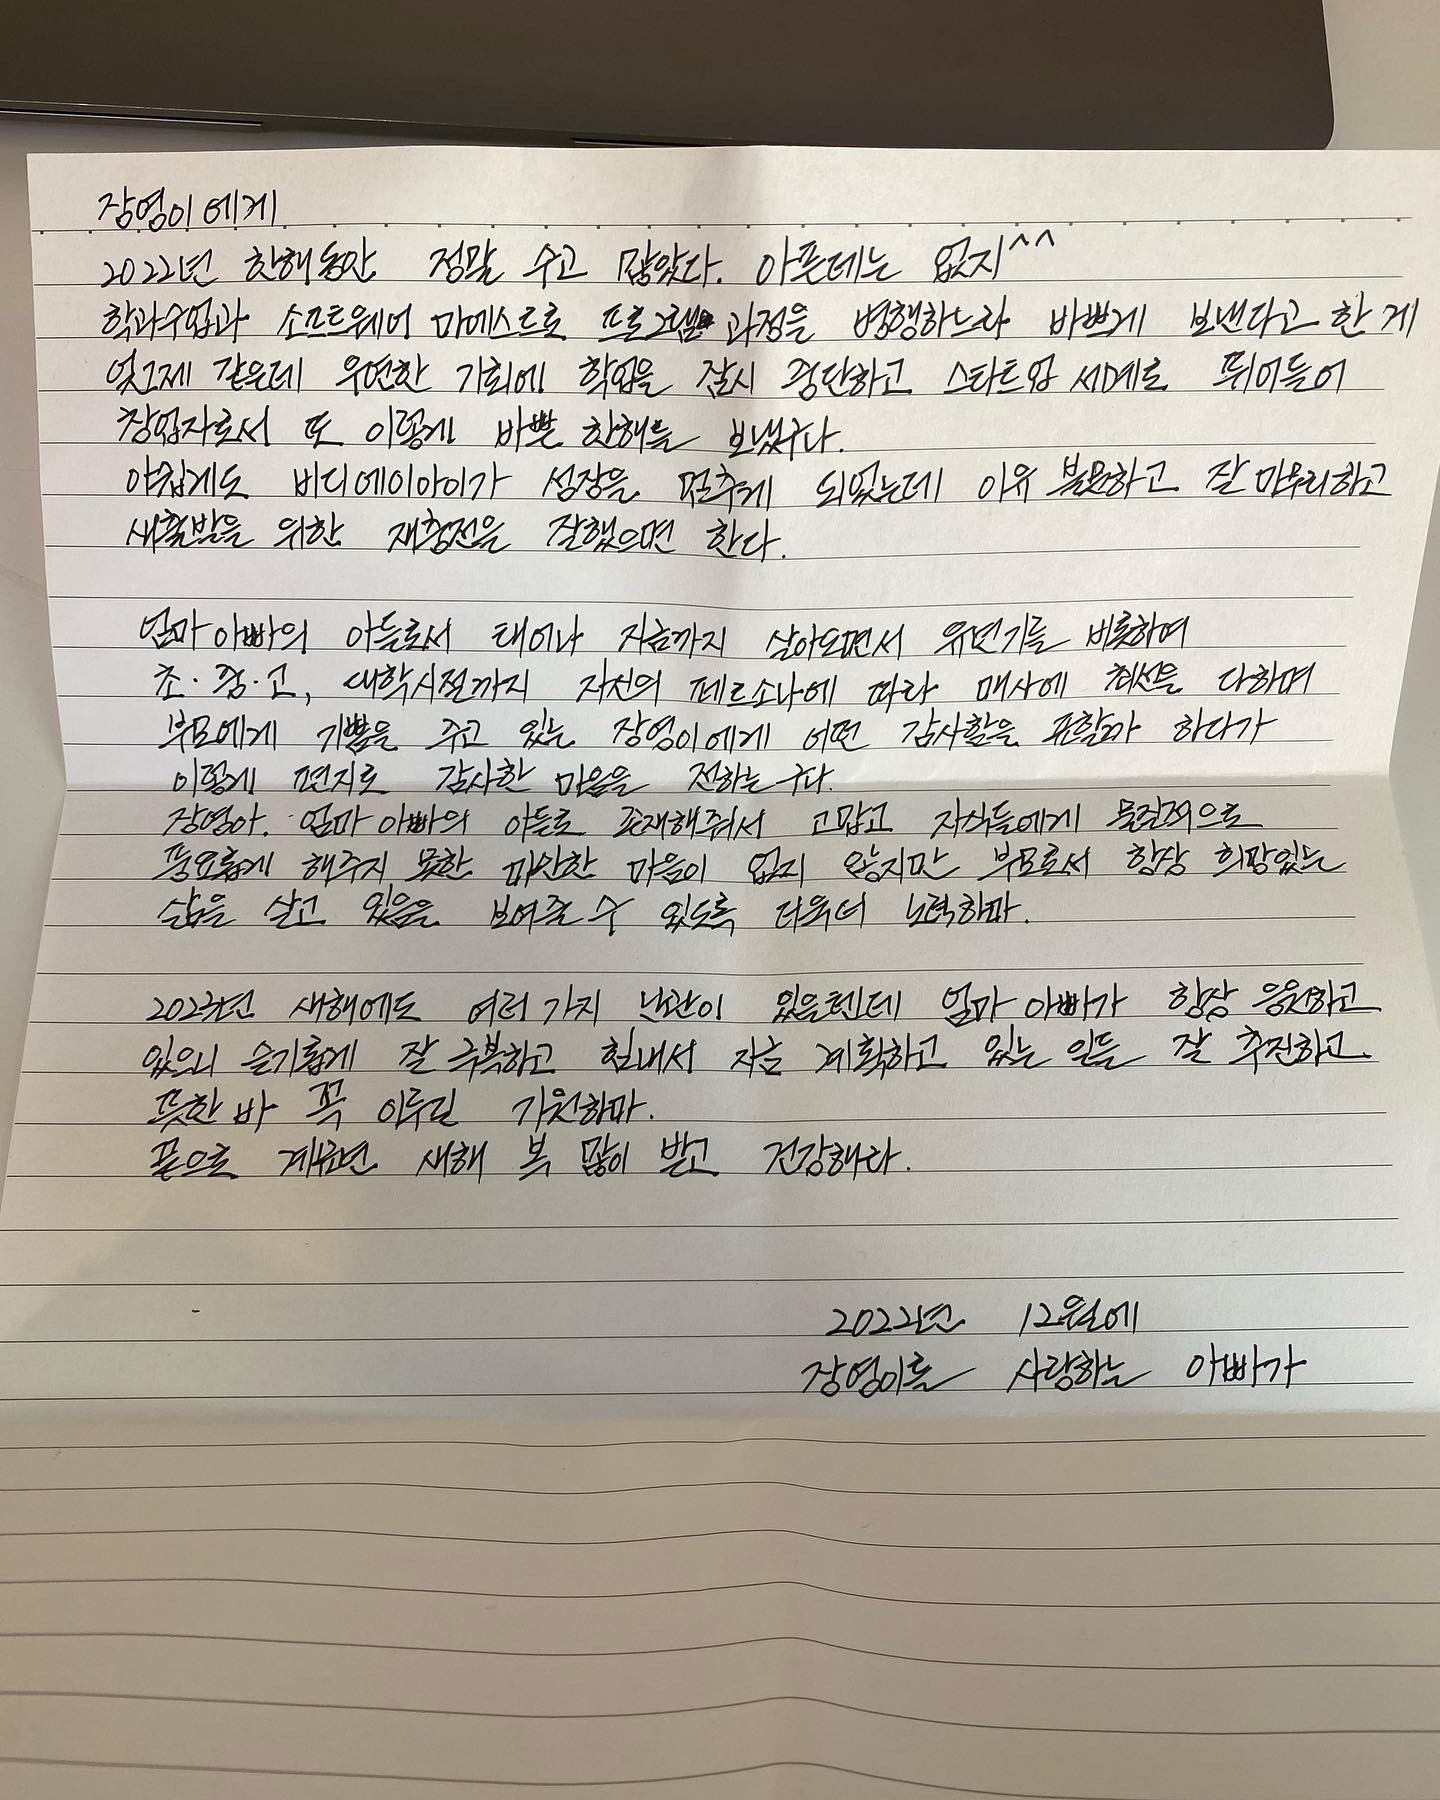 장영이에게
2022년 한해동안 정말 수고 많았다. 아픈데는 없지^^
학과수업과 소프트웨어 마에스트로 프로그램 과정을 병행하느라 바쁘게 보낸다고 한게
엊그제 같은데 우연한 기회에 학업을 잠시 중단하고 스타트업 세계로 뛰어들어
창업자로서 또 이렇게 바쁜 한해를 보냈구나.
아쉽게도 비디에이아이가 성장을 멈추게 되었는데 이유 불문하고 잘 마무리하고
새출발을 위한 재충전을 잘했으면 한다.
엄마아빠의 아들로서 태어나 지금까지 살아오면서 유년기를 비롯하여
초·중·고, 대학시절까지 자신의 페르소나에 따라 매사에 최선을 다하며
부모에게 기쁨을 주고 있는 장영이에게 어떤 감사함을 표할까 하다가
이렇게 편지로 감사한 마음을 전하는구나.
장영아. 엄마아빠의 아들로 존재해줘서 고맙고 자식들에게 물질적으로
풍요롭게 해주지 못한 미안한 마음이 없지 않지만 부모로서 항상 희망있는
삶을 살고 있음을 보여줄 수 있도록 더욱더 노력하마.
2023년 새해에도 여러가지 난관이 있을텐데 엄마아빠가 항상 응원하고
있으니 슬기롭게 잘 극복하고 힘내서 지금 계획하고 있는 일들 잘 추진하고.
뜻한바 꼭 이루길 기원하마.
끝으로 계묘년 새해 복 많이 받고 건강해라.
2022년 12월에
장영이를 사랑하는 아빠가